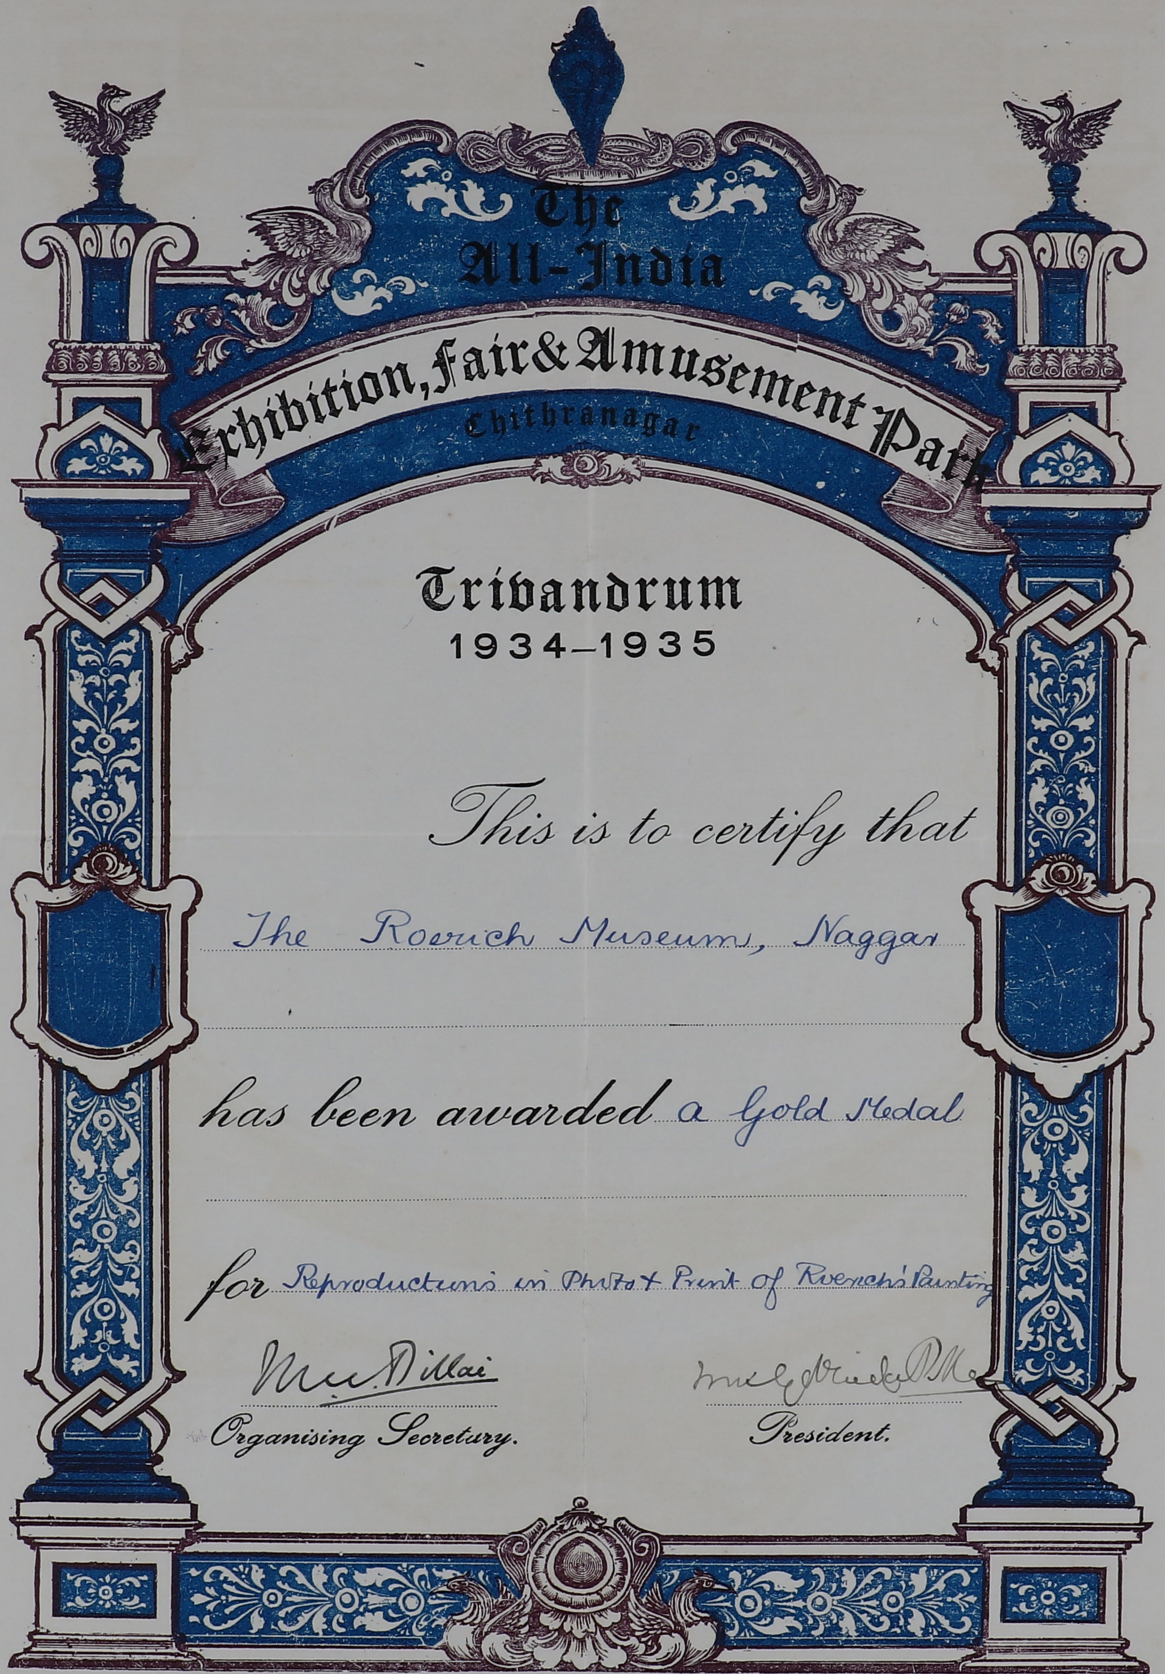 The
All-India
Exhibition, Fair & Amusement Park
Chithranagar
Trivandrum
1934–1935
This is to certify that
The Roerich Museum, Naggar
has been awarded a Gold Medal
for Reproductions in Photo & Print of Roerich's Painting
Pillai
Organising Secretary.
President.